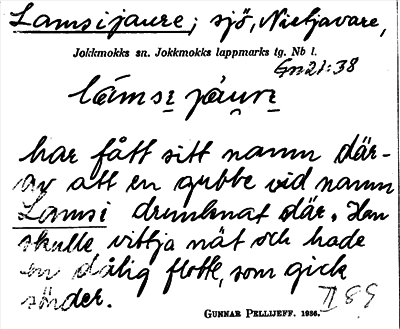 Lamsijaure, sjö, Nietjavare,
Jokkmokks sn. Jokkmokks lappmarks tg. Nb l.
Gn21:38
lámse jáure
har fått sitt namn där-
av att en gubbe vid namn
Lamsi drunknat där. Han
skulle vittja nät och hade
en dålig flotte, som gick
sönder.
GUNNAR PELLIJEFF. 1936.
II 89